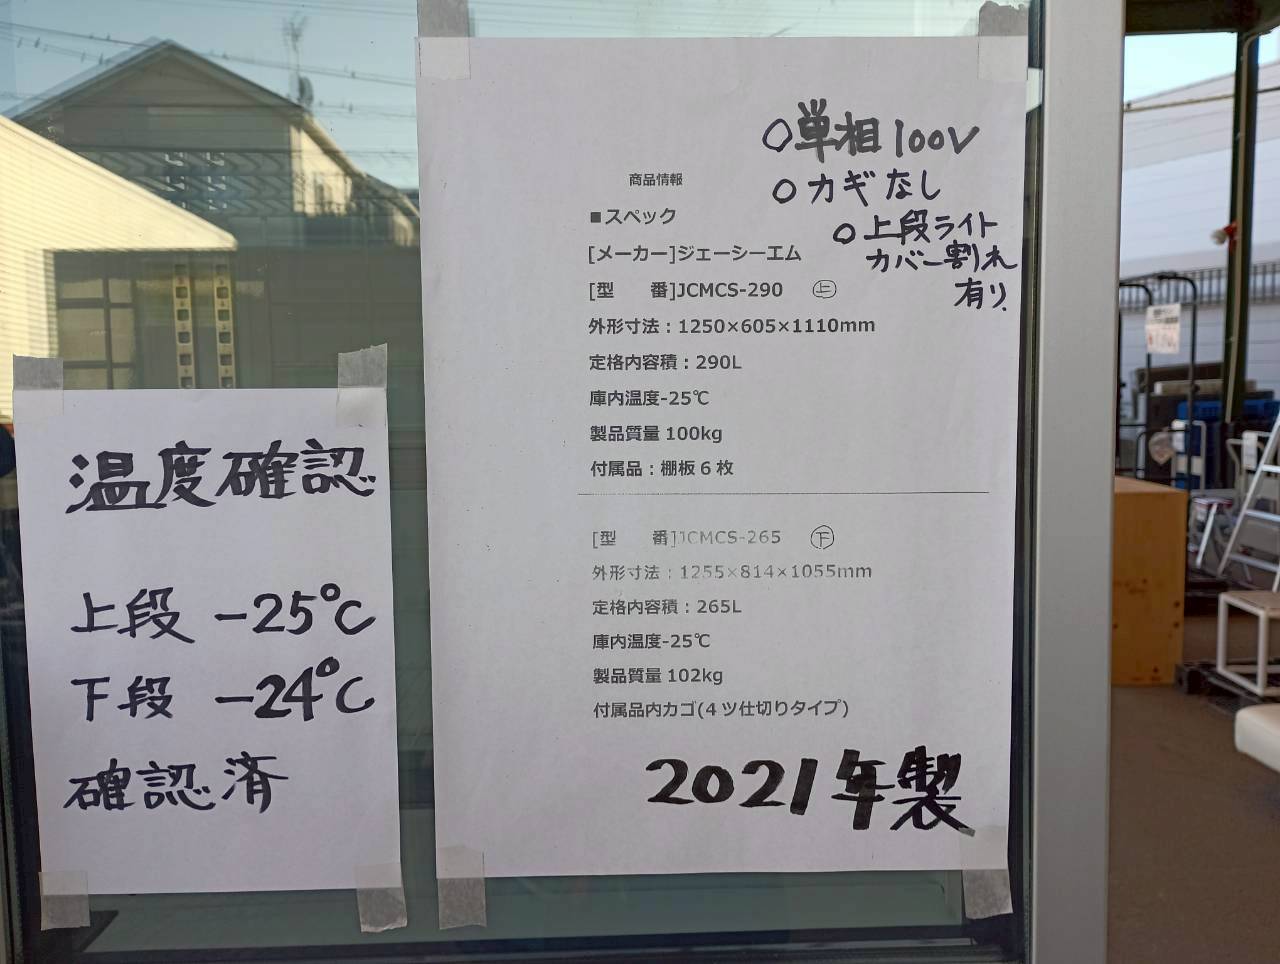 温度確認
上段 -25℃
下段 -24℃
確認済
○単相100V
○カギなし
○上段ライト
カバー割れ
有り.
商品情報
■スペック
[メーカー]ジェーシーエム
[型　　番]JCMCS-290 ㊤
外形寸法：1250×605×1110mm
定格内容積：290L
庫内温度-25℃
製品質量 100kg
付属品：棚板 6 枚
[型　　番]JCMCS-265 ㊦
外形寸法：1255×814×1055mm
定格内容積：265L
庫内温度-25℃
製品質量 102kg
付属品内カゴ(4 ツ仕切りタイプ)
2021年製